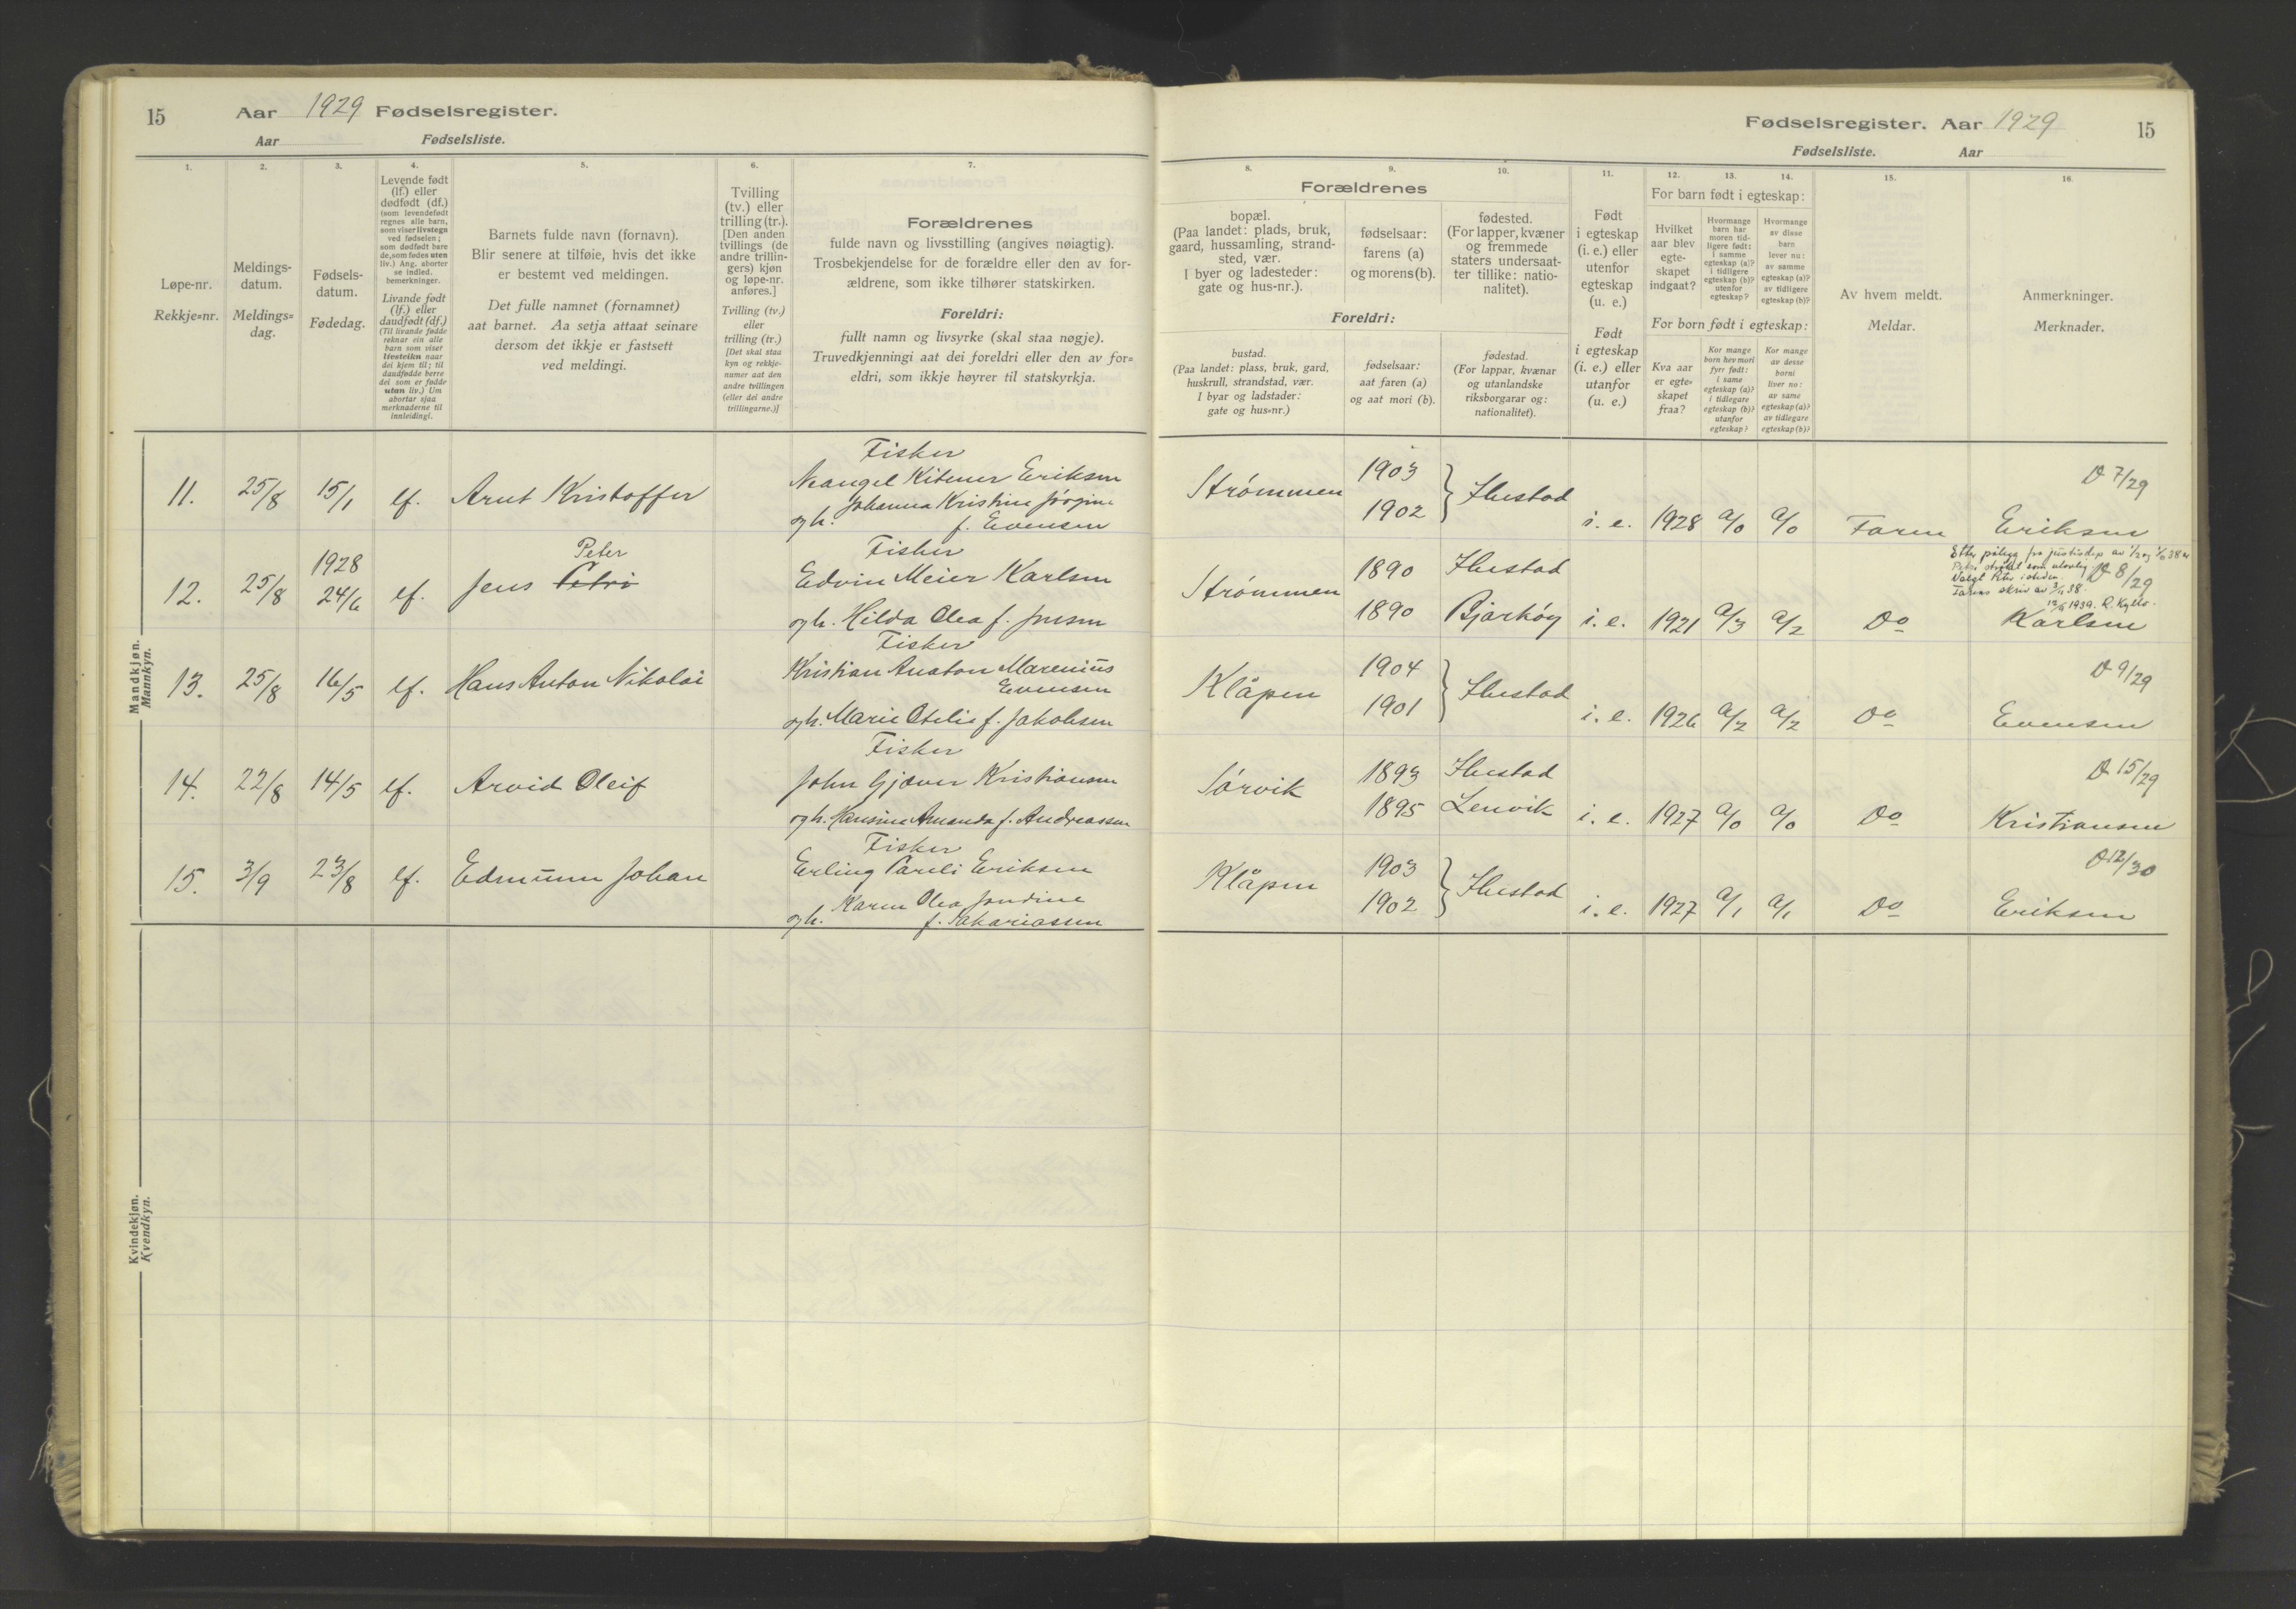 15
Aar 1929 Fødselsregister.
Aar Fødselsliste.
1.
Løpe-nr.
Rekkje=nr.
2.
Meldings-
datum.
Meldings=
dag.
3.
Fødsels-
datum.
Fødedag.
4.
Levende født
(lf.) eller
dødfødt (df.)
(som levendefødt
regnes alle barn,
som viser livstegn
ved fødselen;
som dødfødt bare
de, som fødes uten
liv.) Ang. aborter
se indled.
bemerkninger.
Livande født
(lf.) eller
daudfødt (df.)
(Til livande fødde
reknar ein alle
barn som viser
livsteikn naar
dei kjem til; til
daudfødde berre
dei som er fødde
utan liv.) Um
abortar sjaa
merknaderne til
innleidingi.
5.
Barnets fulde navn (fornavn).
Blir senere at tilføie, hvis det ikke
er bestemt ved meldingen.
Det fulle namnet (fornamnet)
aat barnet. Aa setja attaat seinare
dersom det ikkje er fastsett
ved meldingi.
6.
Tvilling
(tv.) eller
trilling (tr.).
[Den anden
tvillings (de
andre trillin-
gers) kjøn
og løpe-nr.
anføres.]
Tvilling (tv.)
eller
trilling (tr.)
[Det skal staa
kyn og rekkje-
numer aat den
andre tvillingen
(eller dei andre
trillingarne.)]
7.
Forældrenes
fulde navn og livsstilling (angives nøiagtig).
Trosbekjendelse for de forældre eller den av for-
ældrene, som ikke tilhører statskirken.
Foreldri:
fullt namn og livsyrke (skal staa nøgje).
Truvedkjenningi aat dei foreldri eller den av for=
eldri, som ikkje høyrer til statskyrkja.
Mandkjøn.
Mannkyn.
11. 25/8 15/1 lf. Arnt Kristoffer
Fisker
Eriksen
og h. Johanna Kristine Jørgine
f. Evensen
12. 25/8 1928 24/6 lf. Jens Petri
Peter
Fisker
Edvin Meier Karlsen
og h. Hilda Olea f. Jensen
13. 25/8 16/5 lf. Hans Anton Nikolai
Fisker
Kristian Anaton Marenius
Evensen
og h. Marie Otelie f. Jakobsen
14. 22/8 14/5 lf. Arvid Oleif
Fisker
John Gjæver Kristiansen
og h. Hansine Amanda f. Andreassen
15. 3/9 23/8 lf. Edmunn Johan
Fisker
Erling Pareli Eriksen
og h. Karen Olea Jondine
f. Sakariassen
Kvindekjøn.
Kvendkyn.
Fødselsregister. Aar 1929
15
Fødselsliste. Aar
8.
Forældrenes
bopæl.
(Paa landet: plads, bruk,
gaard, hussamling, strand-
sted, vær.
I byer og ladesteder:
gate og hus-nr.).
9.
fødselsaar:
farens (a)
og morens (b).
10.
fødested.
(For lapper, kvæner
og fremmede
staters undersaat-
ter tillike: natio-
nalitet).
Foreldri:
bustad.
(Paa landet: plass, bruk, gard,
huskrull, strandstad, vær.
I byar og ladstader:
gate og hus=nr.)
fødselsaar:
aat faren (a)
og aat mori (b).
fødestad.
(For lappar, kvænar
og utanlandske
riksborgarar og:
nationalitet).
11.
Født
i egteskap
(i. e.) eller
utenfor
egteskap
(u. e.)
Født
i egteskap
(i. e.) eller
utanfor
(u. e.)
12.
13.
14.
For barn født i egteskap:
Hvilket
aar blev
egte-
skapet
indgaat?
Hvormange
barn har
moren tid-
ligere født:
i samme
egteskap (a)?
i tidligere
egteskap (b)?
utenfor
egteskap?
Hvormange
av disse
barn
lever nu:
av samme
egteskap (a)?
av tidligere
egteskap (b)?
For born født i egteskap:
Kva aar
er egte=
skapet
fraa?
Kor mange
born hev mori
fyrr født:
i same
egteskap (a)?
i tidlegare
egteskap (b)?
utanfor
egteskap?
Kor mange
av desse
borni
liver no:
av same
egteskap (a)?
av tidlegare
egteskap (b)?
15.
Av hvem meldt.
Meldar.
16.
Anmerkninger.
Merknader.
Strømmen 1903 1902 } Ibestad i. e. 1928 a/0 a/0 Faren
D 7/29
Eriksen
Strømmen 1890 Ibestad
1890 Bjarkøy i. e. 1921 a/3 a/2 Do
D 8/29
Valgt Peter isteden.
Farens skriv av
Karlsen
Klåpen 1904 1901 } Ibestad i. e. 1926 a/2 a/2 Do
D 9/29
Evensen
Sørvik 1893 Ibestad
1895 Lenvik i. e. 1927 a/0 a/0 Do
D 15/29
Kristiansen
Klåpen 1903 1902 } Ibestad i. e. 1927 a/1 a/1 Do
D 12/30
Eriksen